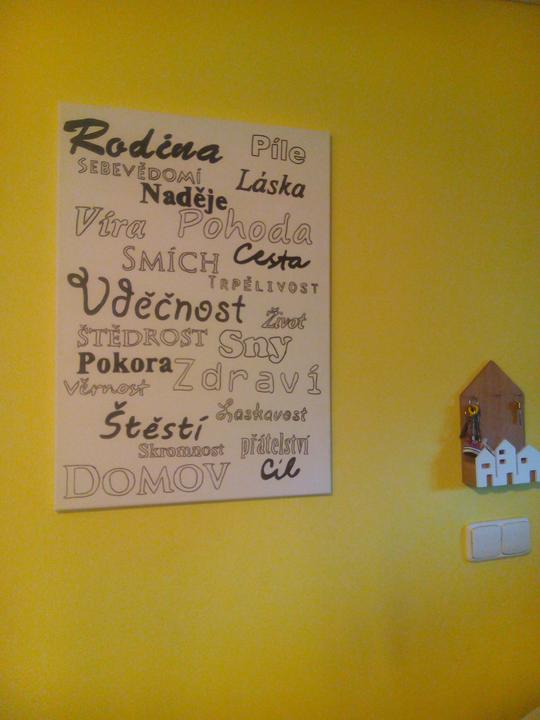 Rodina Píle
SEBEVĚDOMÍ Láska
Naděje
Víra Pohoda
SMÍCH Cesta
TRPĚLIVOST
Vděčnost Život
ŠTĚDROST Sny
Pokora Zdraví
Věrnost
Štěstí Laskavost
Skromnost přátelství
DOMOV Cíl